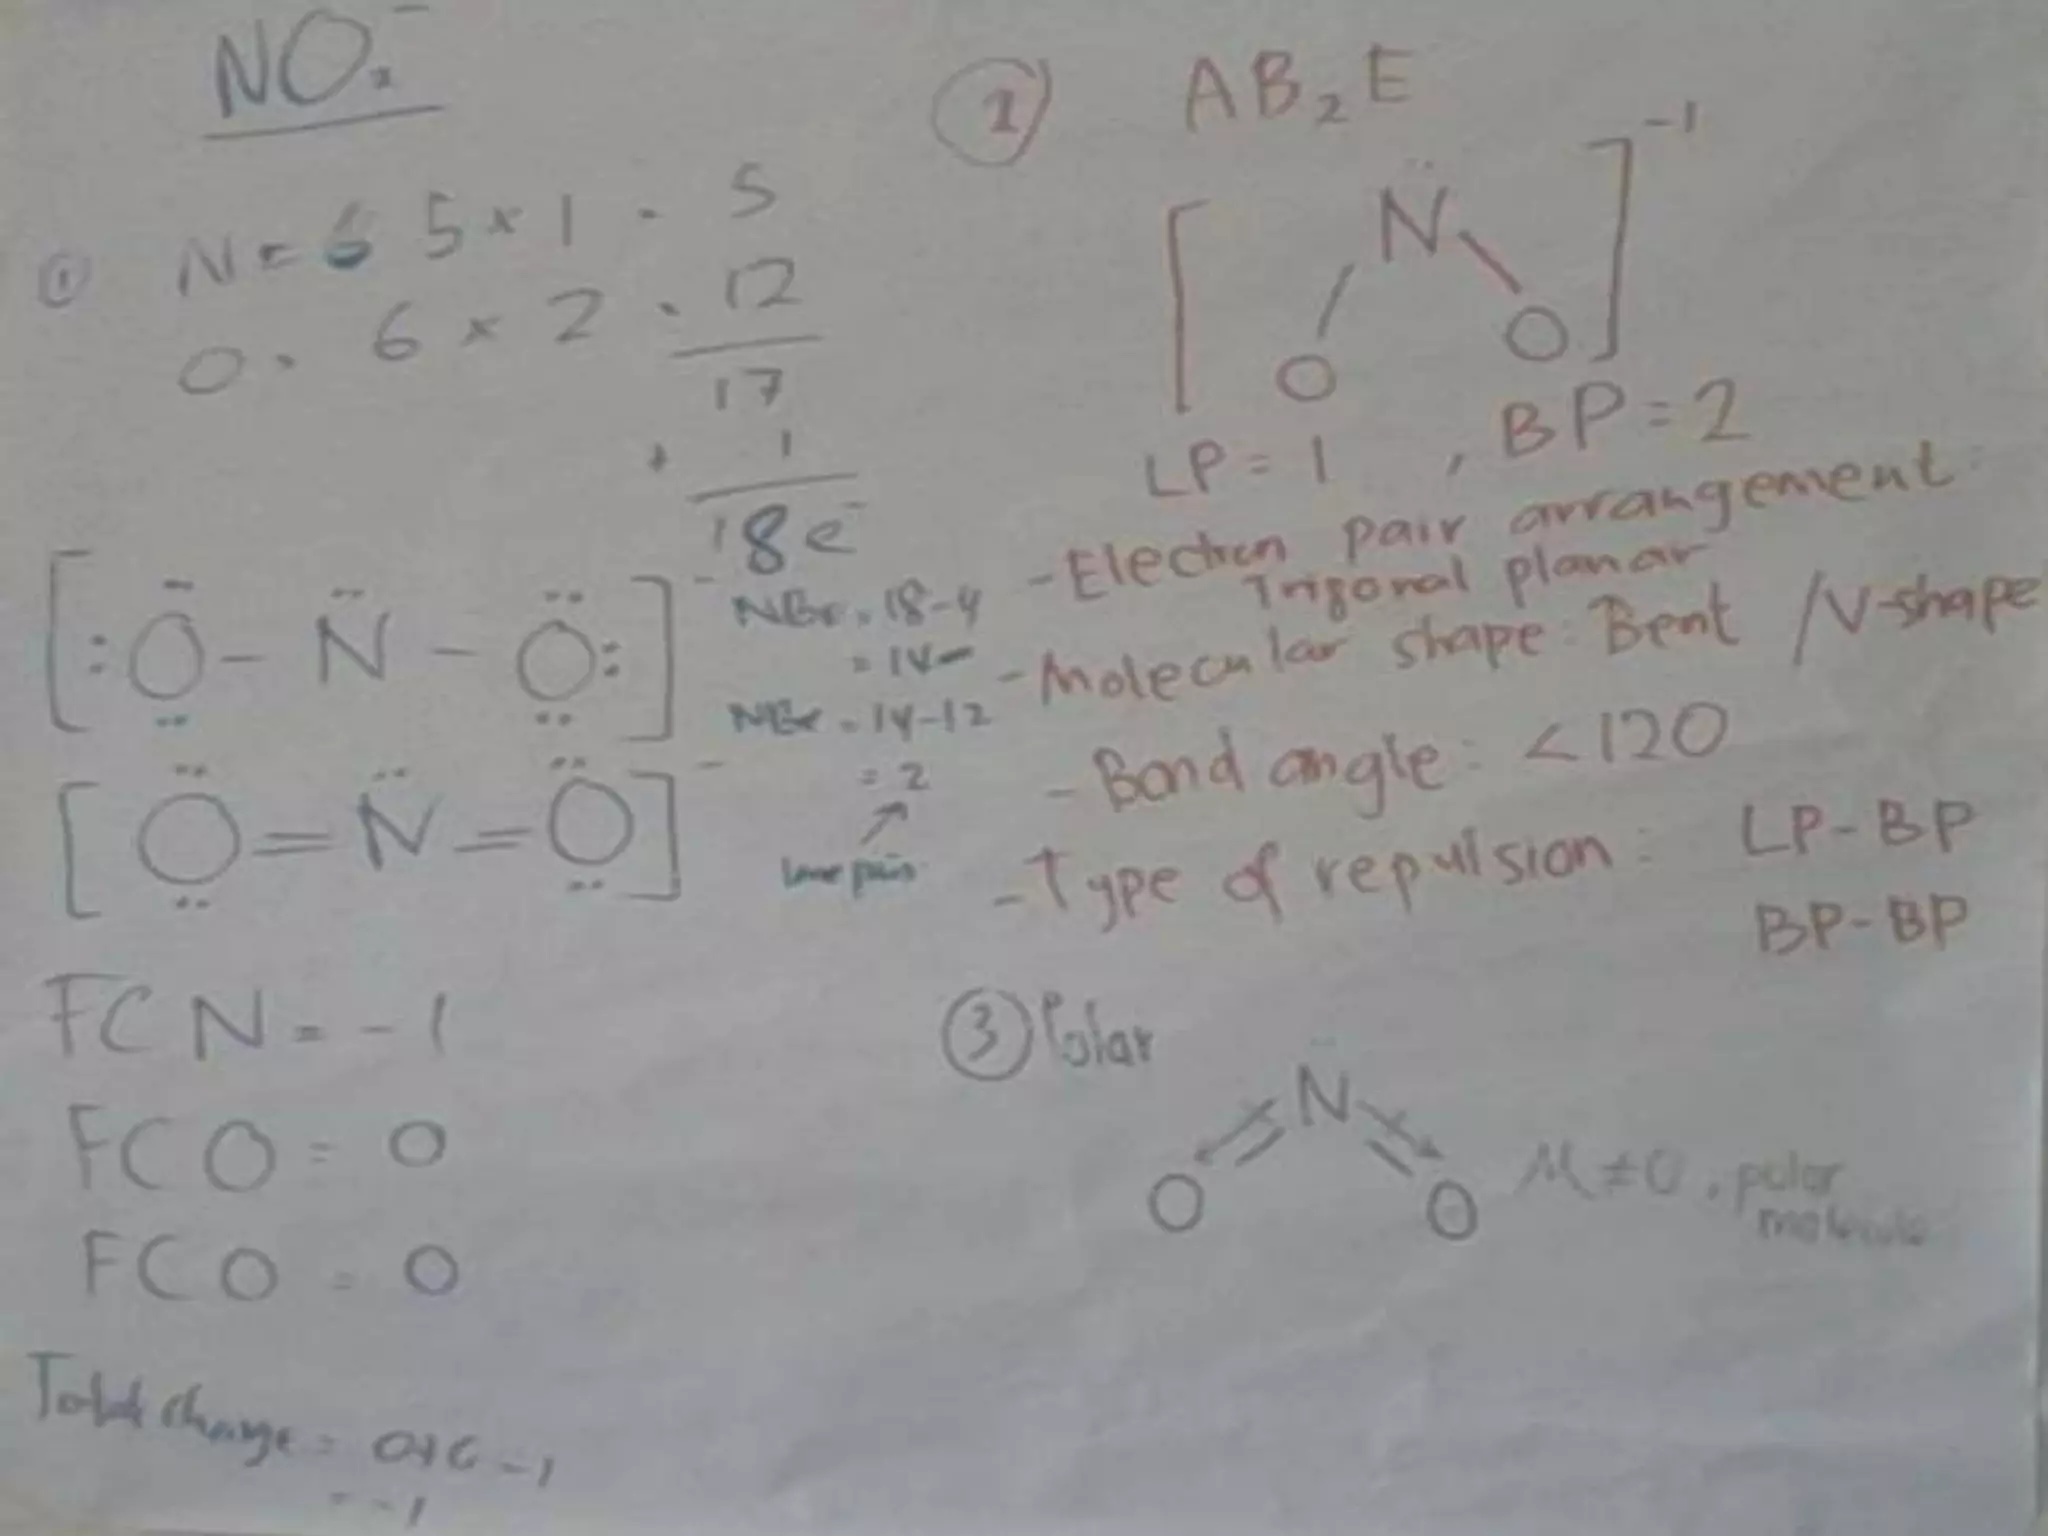 NO₂⁻
① N = 6 5 × 1 = 5
O = 6 × 2 = 12
17
+ 1
18e⁻
[:Ö - N̈ - Ö:]⁻
NBe = 18-4
= 14
NBe = 14-12
= 2
lone pair
[Ö = N̈ = Ö]⁻
FC N = -1
FC O = 0
FC O = 0
Total charge = 0+0-1
= -1
② AB₂E
[O / N̈ \ O]⁻¹
LP = 1 , BP = 2
- Electron pair arrangement:
Trigonal planar
- Molecular shape: Bent / V-shape
- Bond angle: <120
- Type of repulsion: LP-BP
BP-BP
③ Polar
N
O O
M ≠ 0, polar
molecule